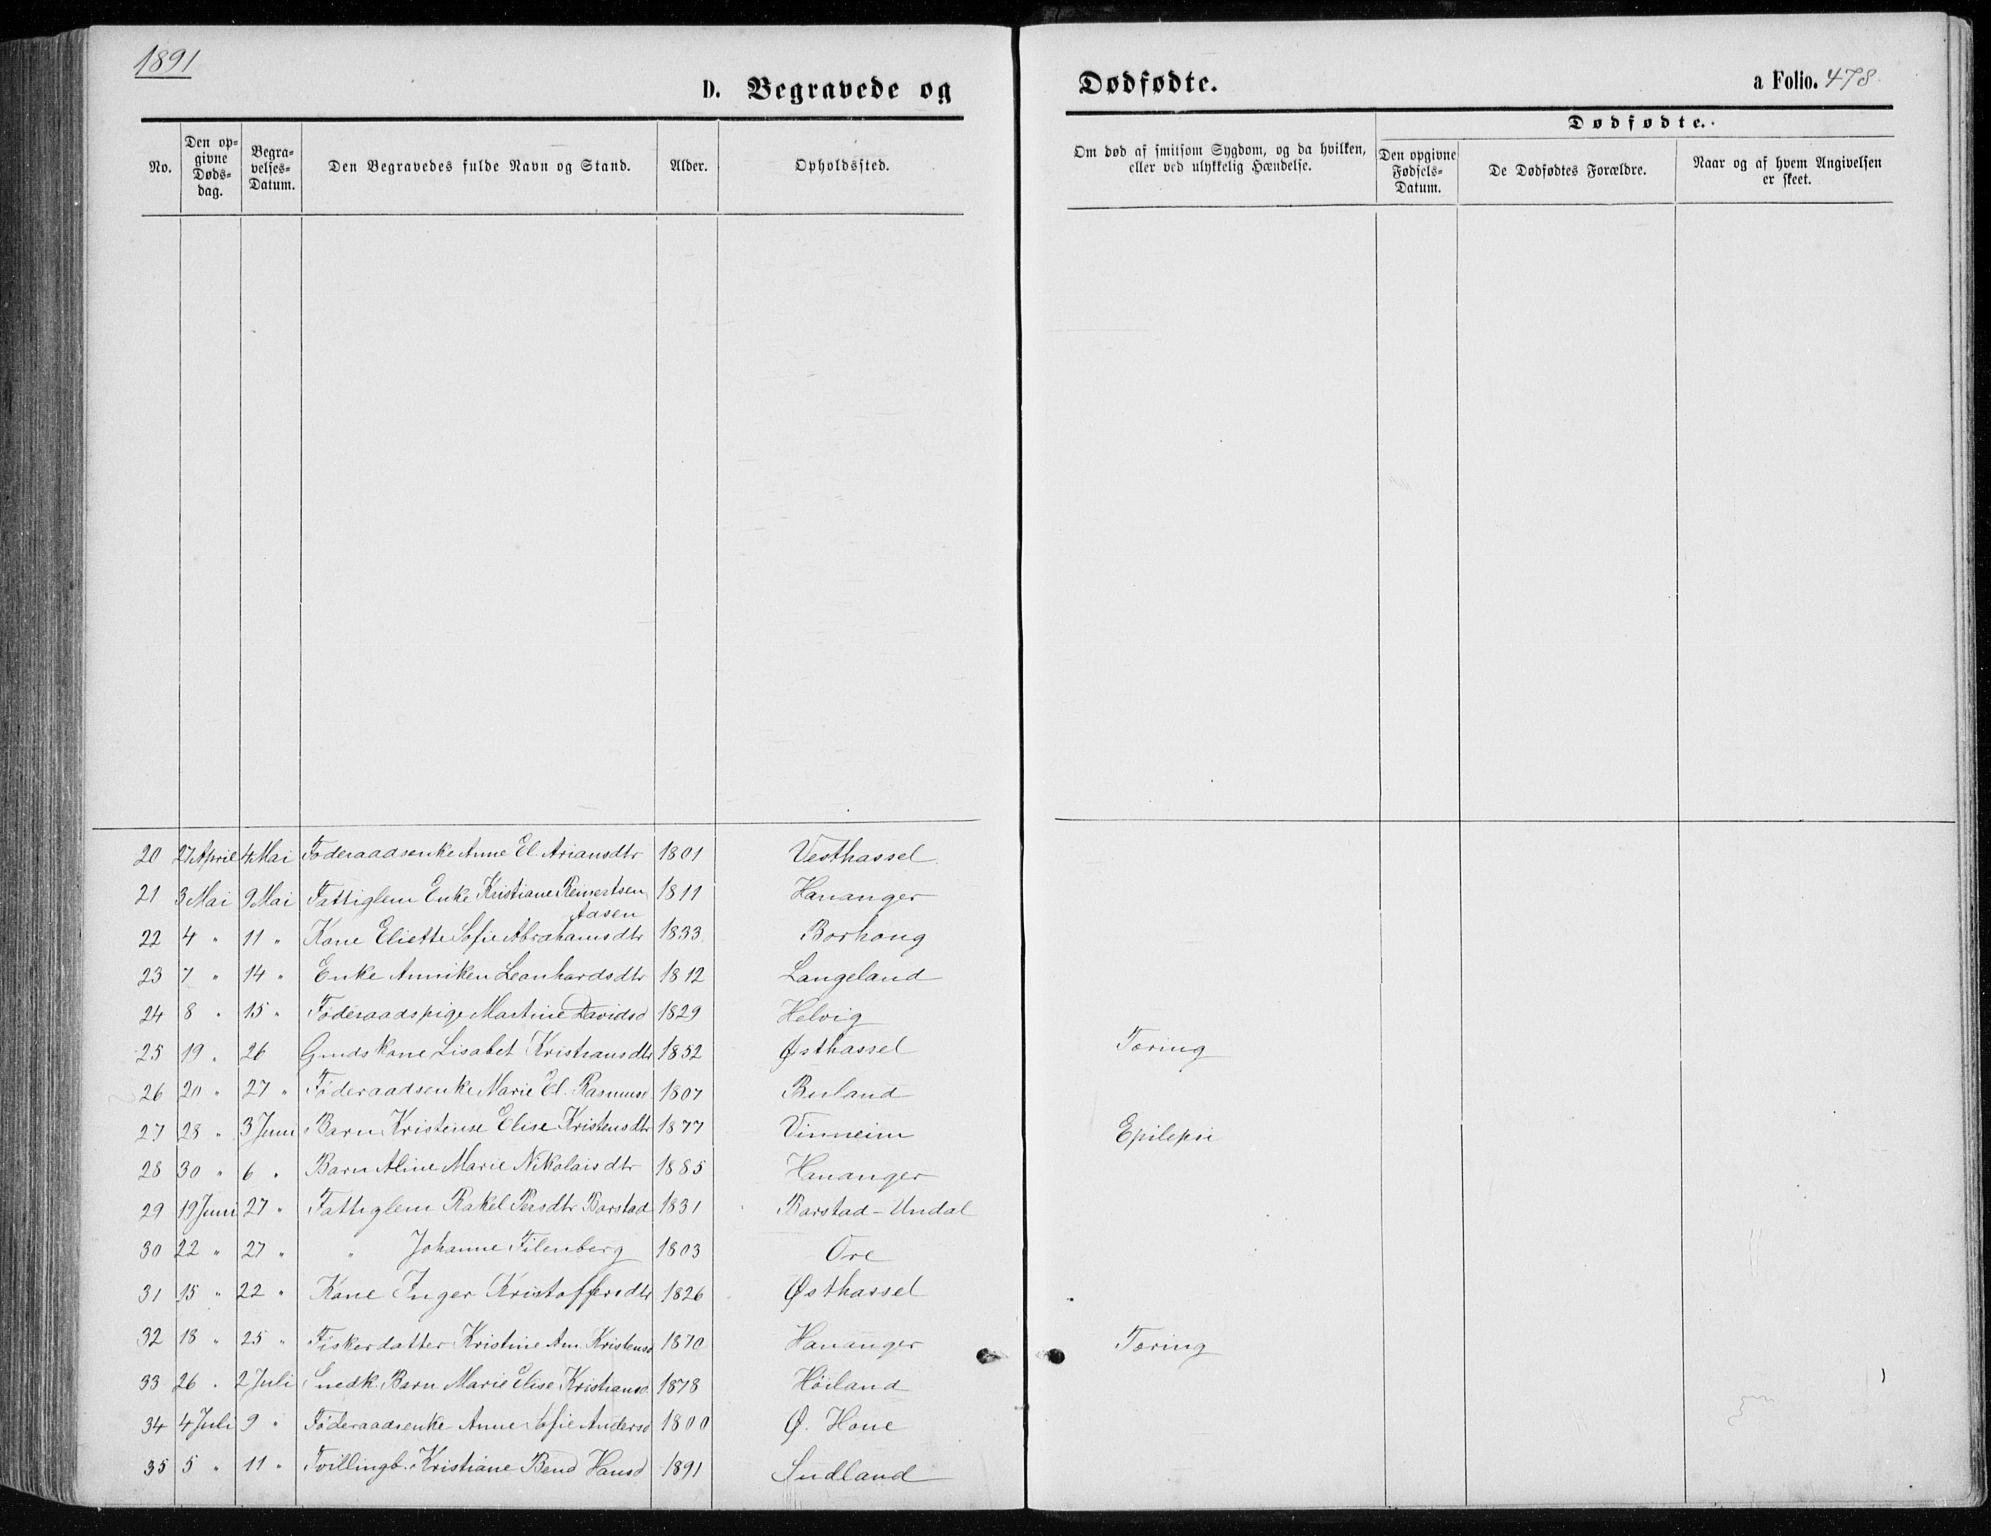 1891
D. Begravede og Dødfødte. a Folio. 478.
No. | Den opgivne Dødsdag. | Begravelses-Datum. | Den Begravedes fulde Navn og Stand. | Alder. | Opholdssted. | Om død af smitsom Sygdom, og da hvilken, eller ved ulykkelig Hændelse. | Dødfødte. | Den opgivne Fødsels-Datum. | De Dødfødtes Forældre. | Naar og af hvem Angivelsen er skeet.
20 27 April 4 Mai Føderaadsenke Anne El. Ariansdtr 1801 Vesthassel
21 3 Mai 9 Mai Fattiglem Enke Kristiane Reinertsen Aasen 1811 Hananger
22 4 " 11 " Kone Eliette Sofie Abrahamsdtr 1833 Borhoug
23 7 " 14 " Enke Anniken Leonhardsdtr 1812 Langeland
24 8 " 15 " Føderaadspige Martine Davidsd 1829 Helvig
25 19 " 26 Gmdskone Lisabet Kristiansdtr 1852 Østhassel Tæring
26 20 " 27 " Føderaadsenke Marie El. Rasmusd 1807 Buland
27 28 " 3 Juni Barn Kristense Elise Kristensdtr 1877 Vinneim Epilepsi
28 30 " 6 " Barn Aline Marie Nikolaisdtr 1885 Hananger
29 19 Juni 27 " Fattiglem Rakel Persdtr Barstad 1831 Barstad - Undal
30 22 " 27 " " Johanne Filenberg 1803 Ore
31 15 " 22 " Kone Inger Kristoffersdtr 1826 Østhassel
32 18 " 25 " Fiskerdatter Kristine Am. Kristensd 1870 Hananger Tæring
33 26 " 2 Juli Snedk. Barn Marie Elise Kristiansd. 1878 Høiland
34 4 Juli 9 " Føderaadsenke Anne Sofie Andersd 1800 Ø. Hone
35 5 " 11 " Tvillingb. Kristiane Bend Hansd 1891 Sudland